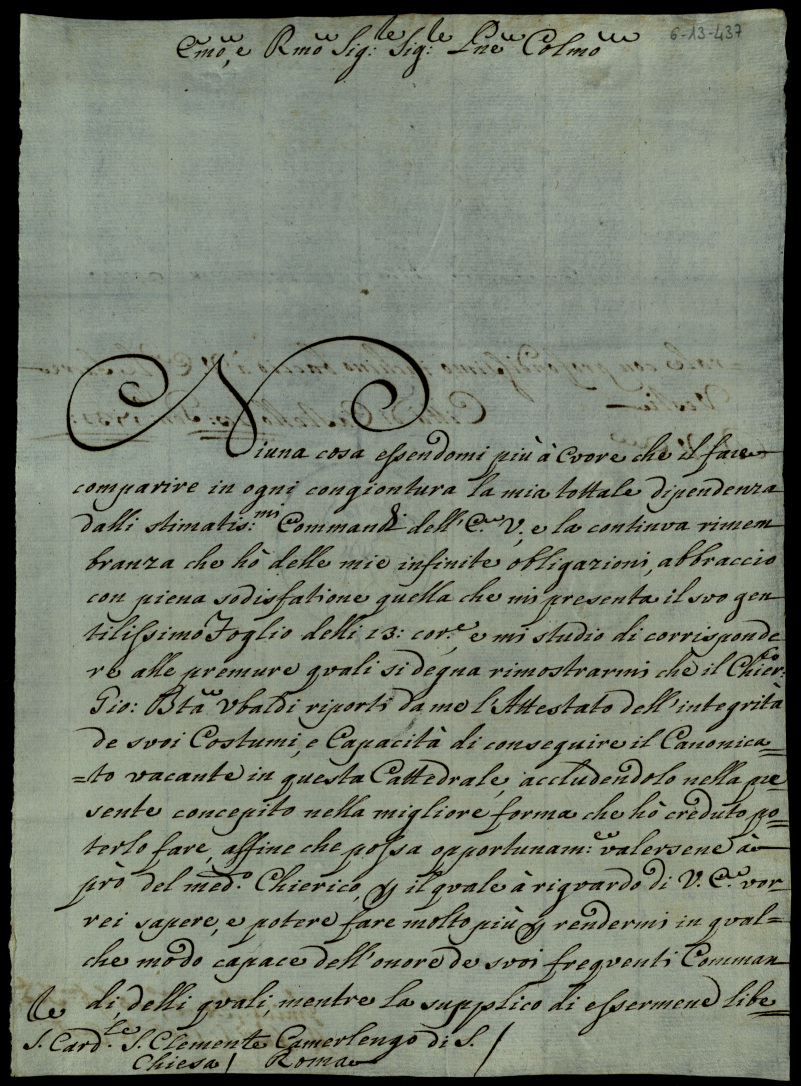 6-13-437
Emo, e Rmo Sig:re Sig:re Pne Colmo
Niuna cosa essendomi più à Cuore che il fare
comparire in ogni congiontura la mia tottale dipendenza
dalli stimatis:mi Commandi dell'E.V., e la continva rimem
branza che hò delle mie infinite obligazioni, abbraccio
con piena sodisfatione quella che mi presenta il svo gen
tilissimo Foglio delli 13: cor.e e mi studio di corrisponde
re alle premure quali si degna rimostrarmi che il Chier:co
Gio: Btta Vbaldi riporti da me l'Attestato dell'integrità
de svoi Costumi, e Capacità di conseguire il Canonica=
=to vacante in questa Cattedrale, accludendolo nella pre
sente concepito nella migliore forma che hò creduto po=
terlo fare, affine che possa opportunam:e valersene à
prò del med.o Chierico, per il qvale à rigvardo di V. E. vor
rei sapere, e potere fare molto più per rendermi in qval=
che modo capace dell'onore de svoi freqventi Comman
di, delli qvali, mentre la supplico di essermene libe=
S. Card.le S. Clemente Camerlengo di S.
Chiesa / Roma